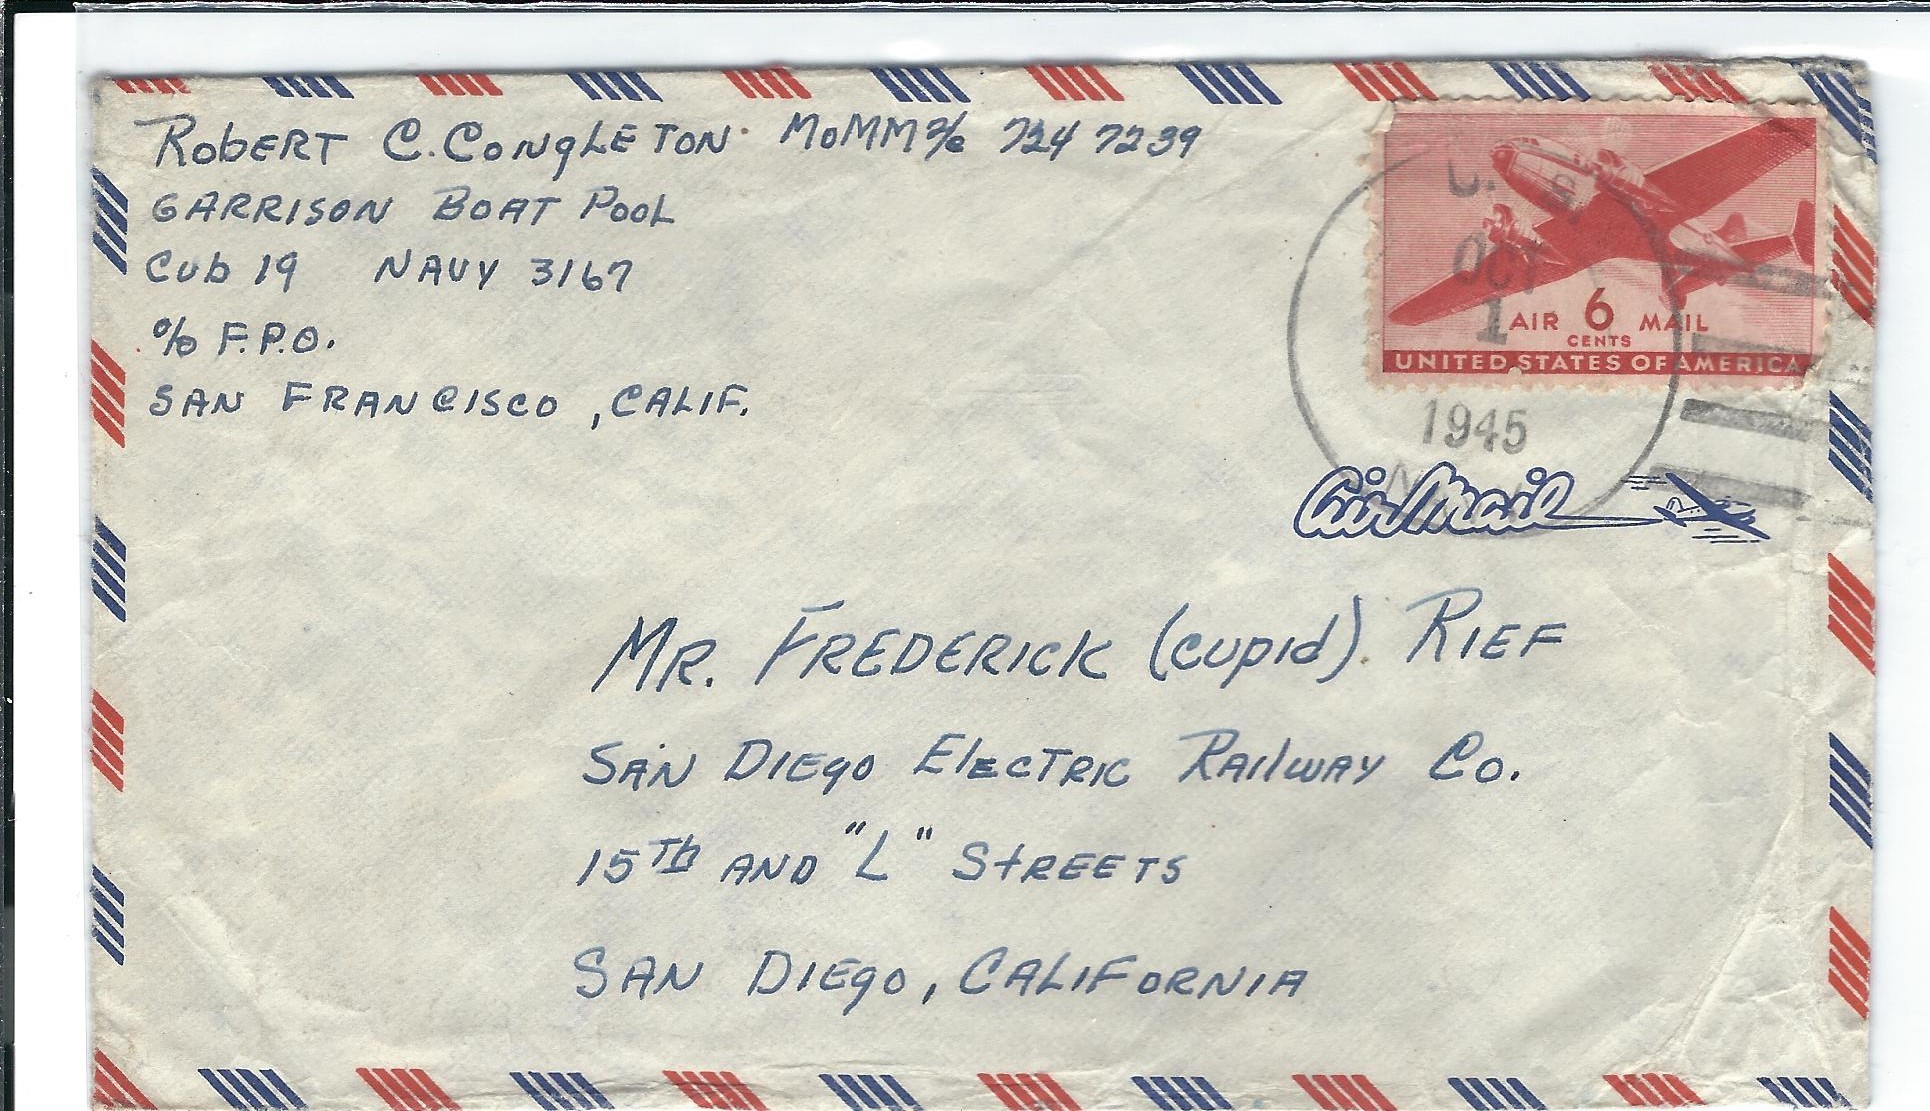 Robert C. Congleton MoMM 2/c 724 7239
Garrison Boat Pool
Cub 19 Navy 3167
c/o F.P.O.
San Francisco, Calif.
U.S.
OCT
1
1945
AIR 6 MAIL
CENTS
UNITED STATES OF AMERICA
Air Mail
Mr. Frederick (Cupid) Rief
San Diego Electric Railway Co.
15th and "L" Streets
San Diego, California